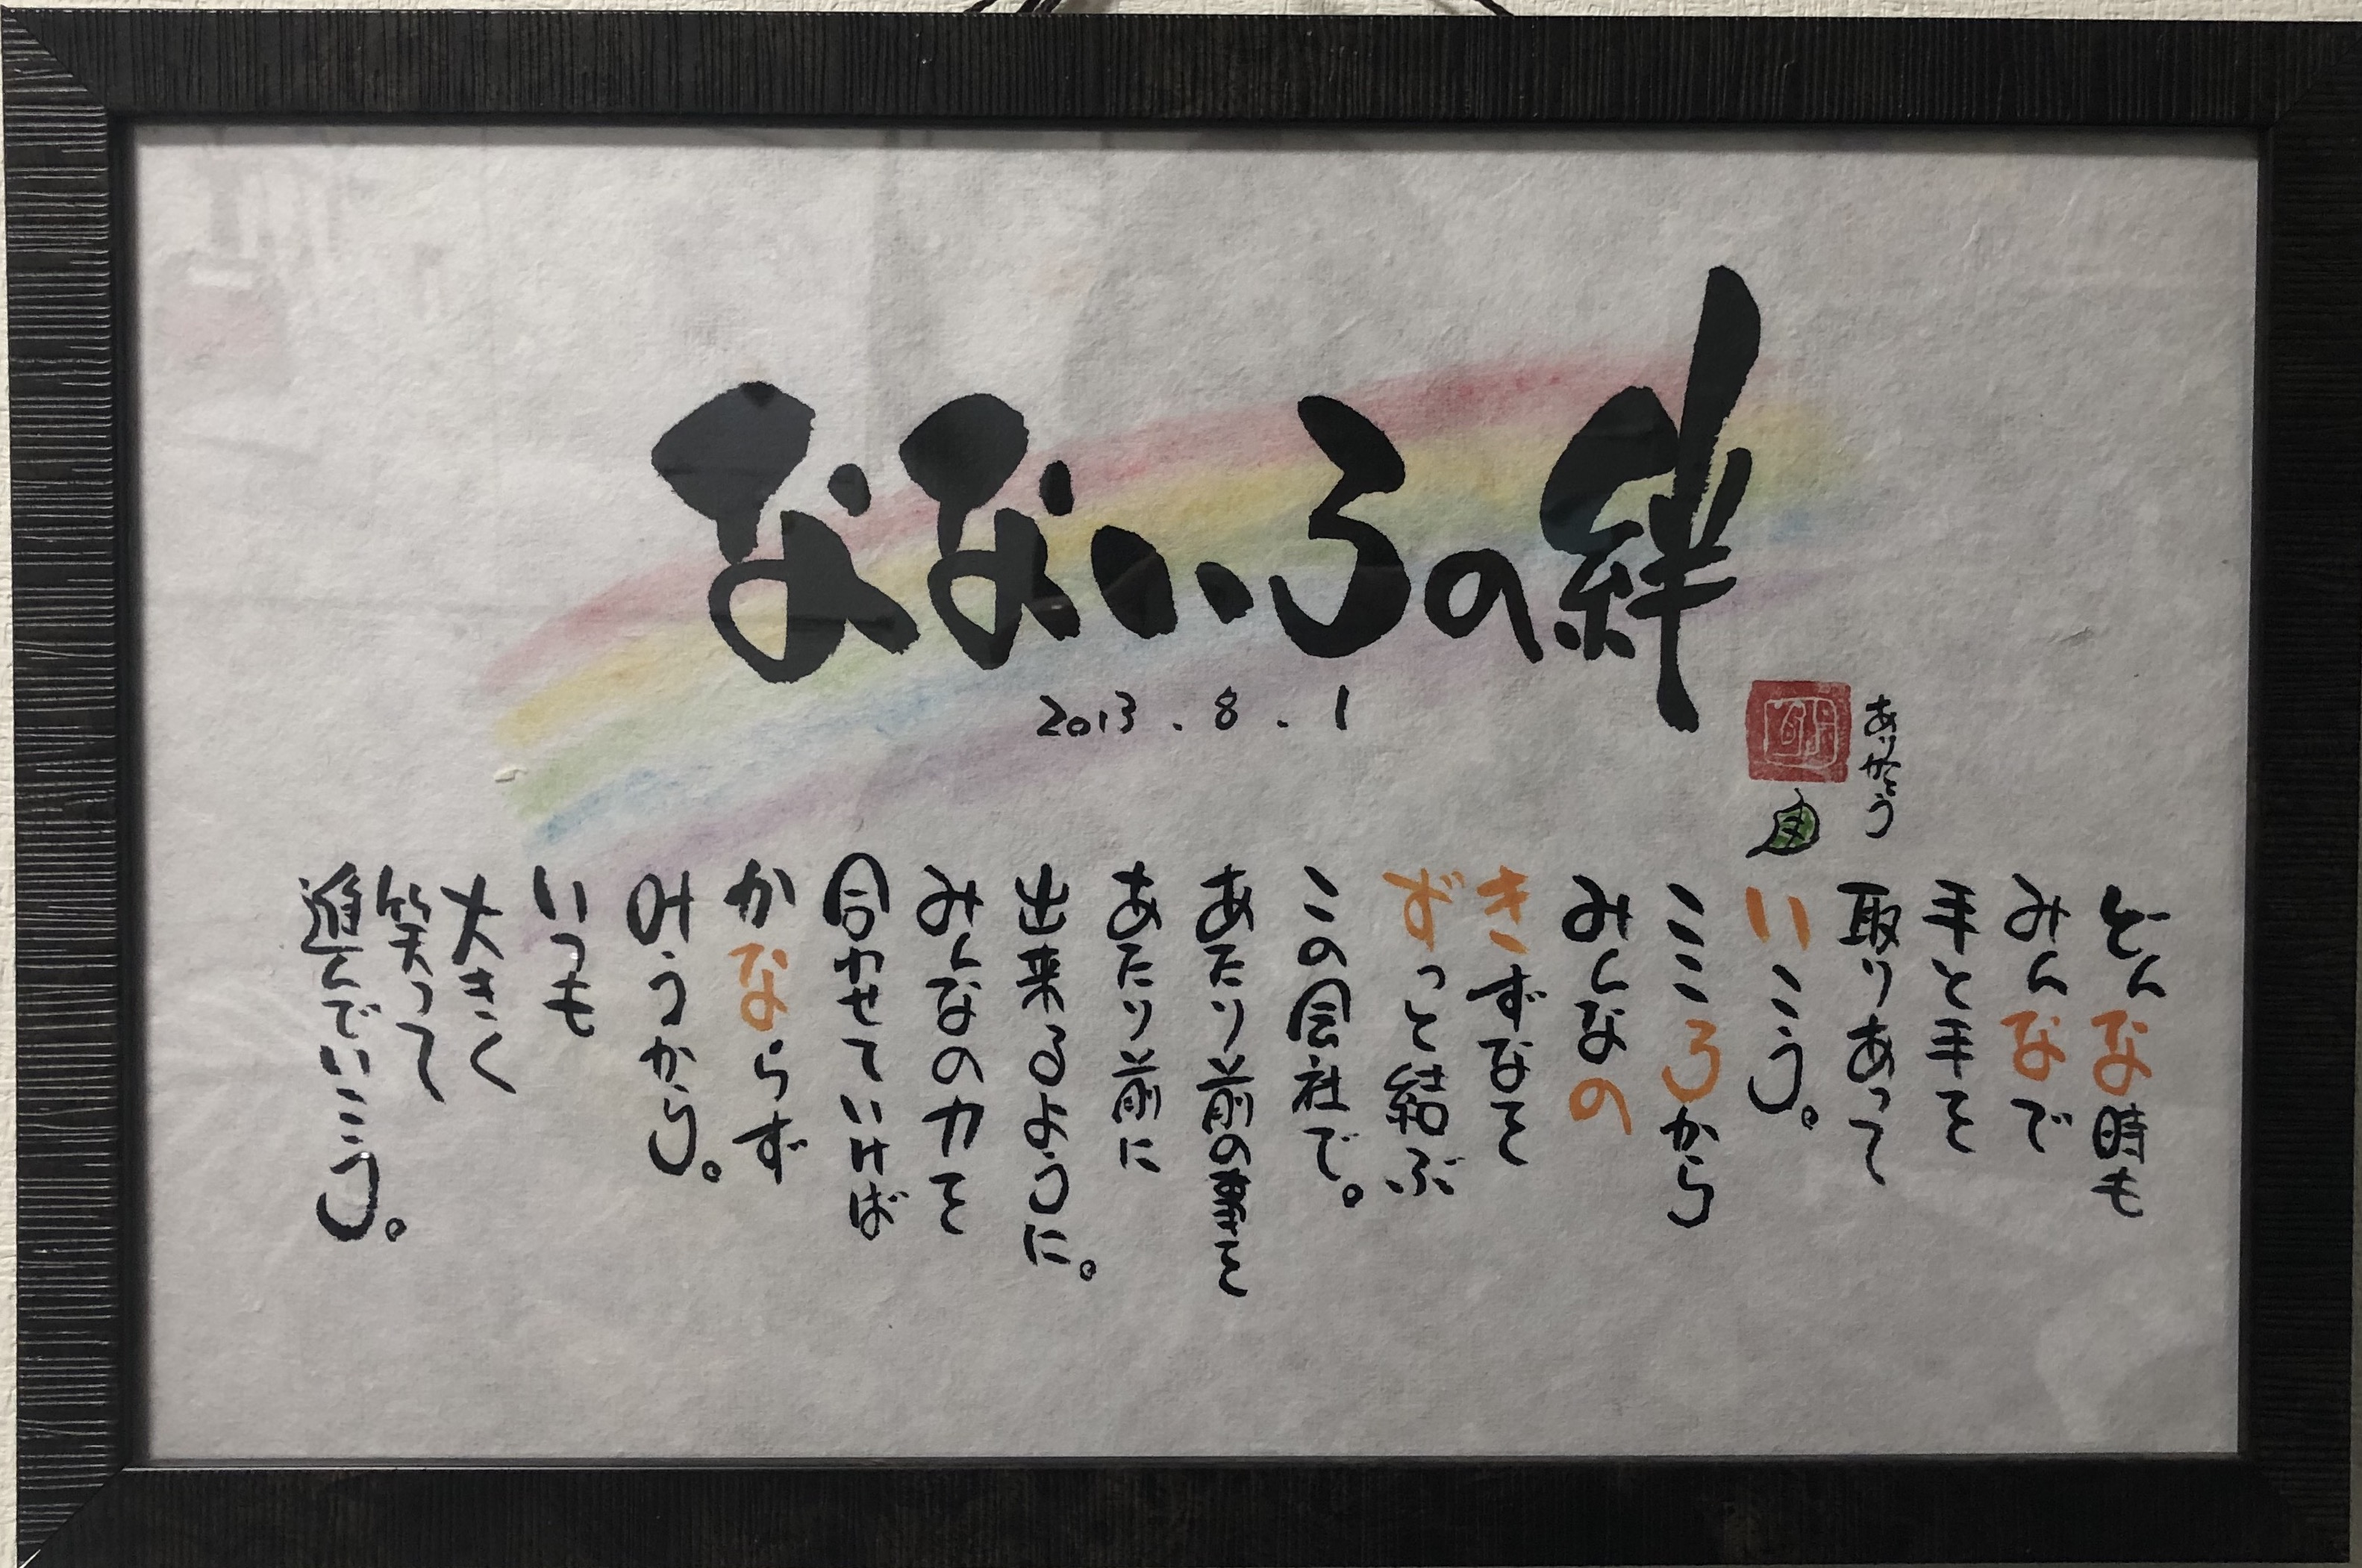 なないろの絆
2013.8.1
ありがとう
どんな時も
みんなで
手と手を
取りあって
いこう。
こころから
みんなの
きずなを
ずっと結ぶ
この会社で。
あたり前の事を
あたり前に
出来るように。
みんなの力を
合わせていけば
かならず
叶うから。
いつも
大きく
笑って
進んでいこう。